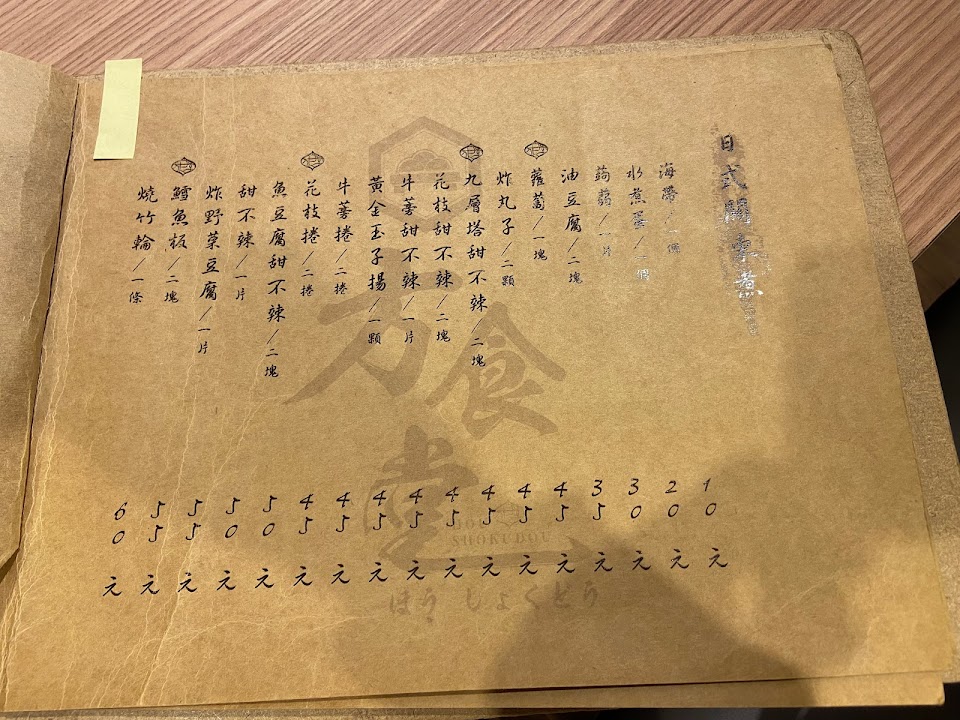 日式關東煮
海帶/一條 10元
水煮蛋/一個 20元
蒟蒻/一片 30元
油豆腐/二塊 35元
蘿蔔/一塊 45元
炸丸子/二顆 45元
九層塔甜不辣/二塊 45元
花枝甜不辣/二塊 45元
牛蒡甜不辣/一片 45元
黃金玉子揚/一顆 45元
牛蒡捲/二捲 45元
花枝捲/二捲 45元
魚豆腐甜不辣/二塊 50元
甜不辣/一片 50元
炸野菜豆腐/一片 55元
鱈魚板/二塊 55元
燒竹輪/一條 60元
食堂
SHOKUDOU
ほうしょくどう